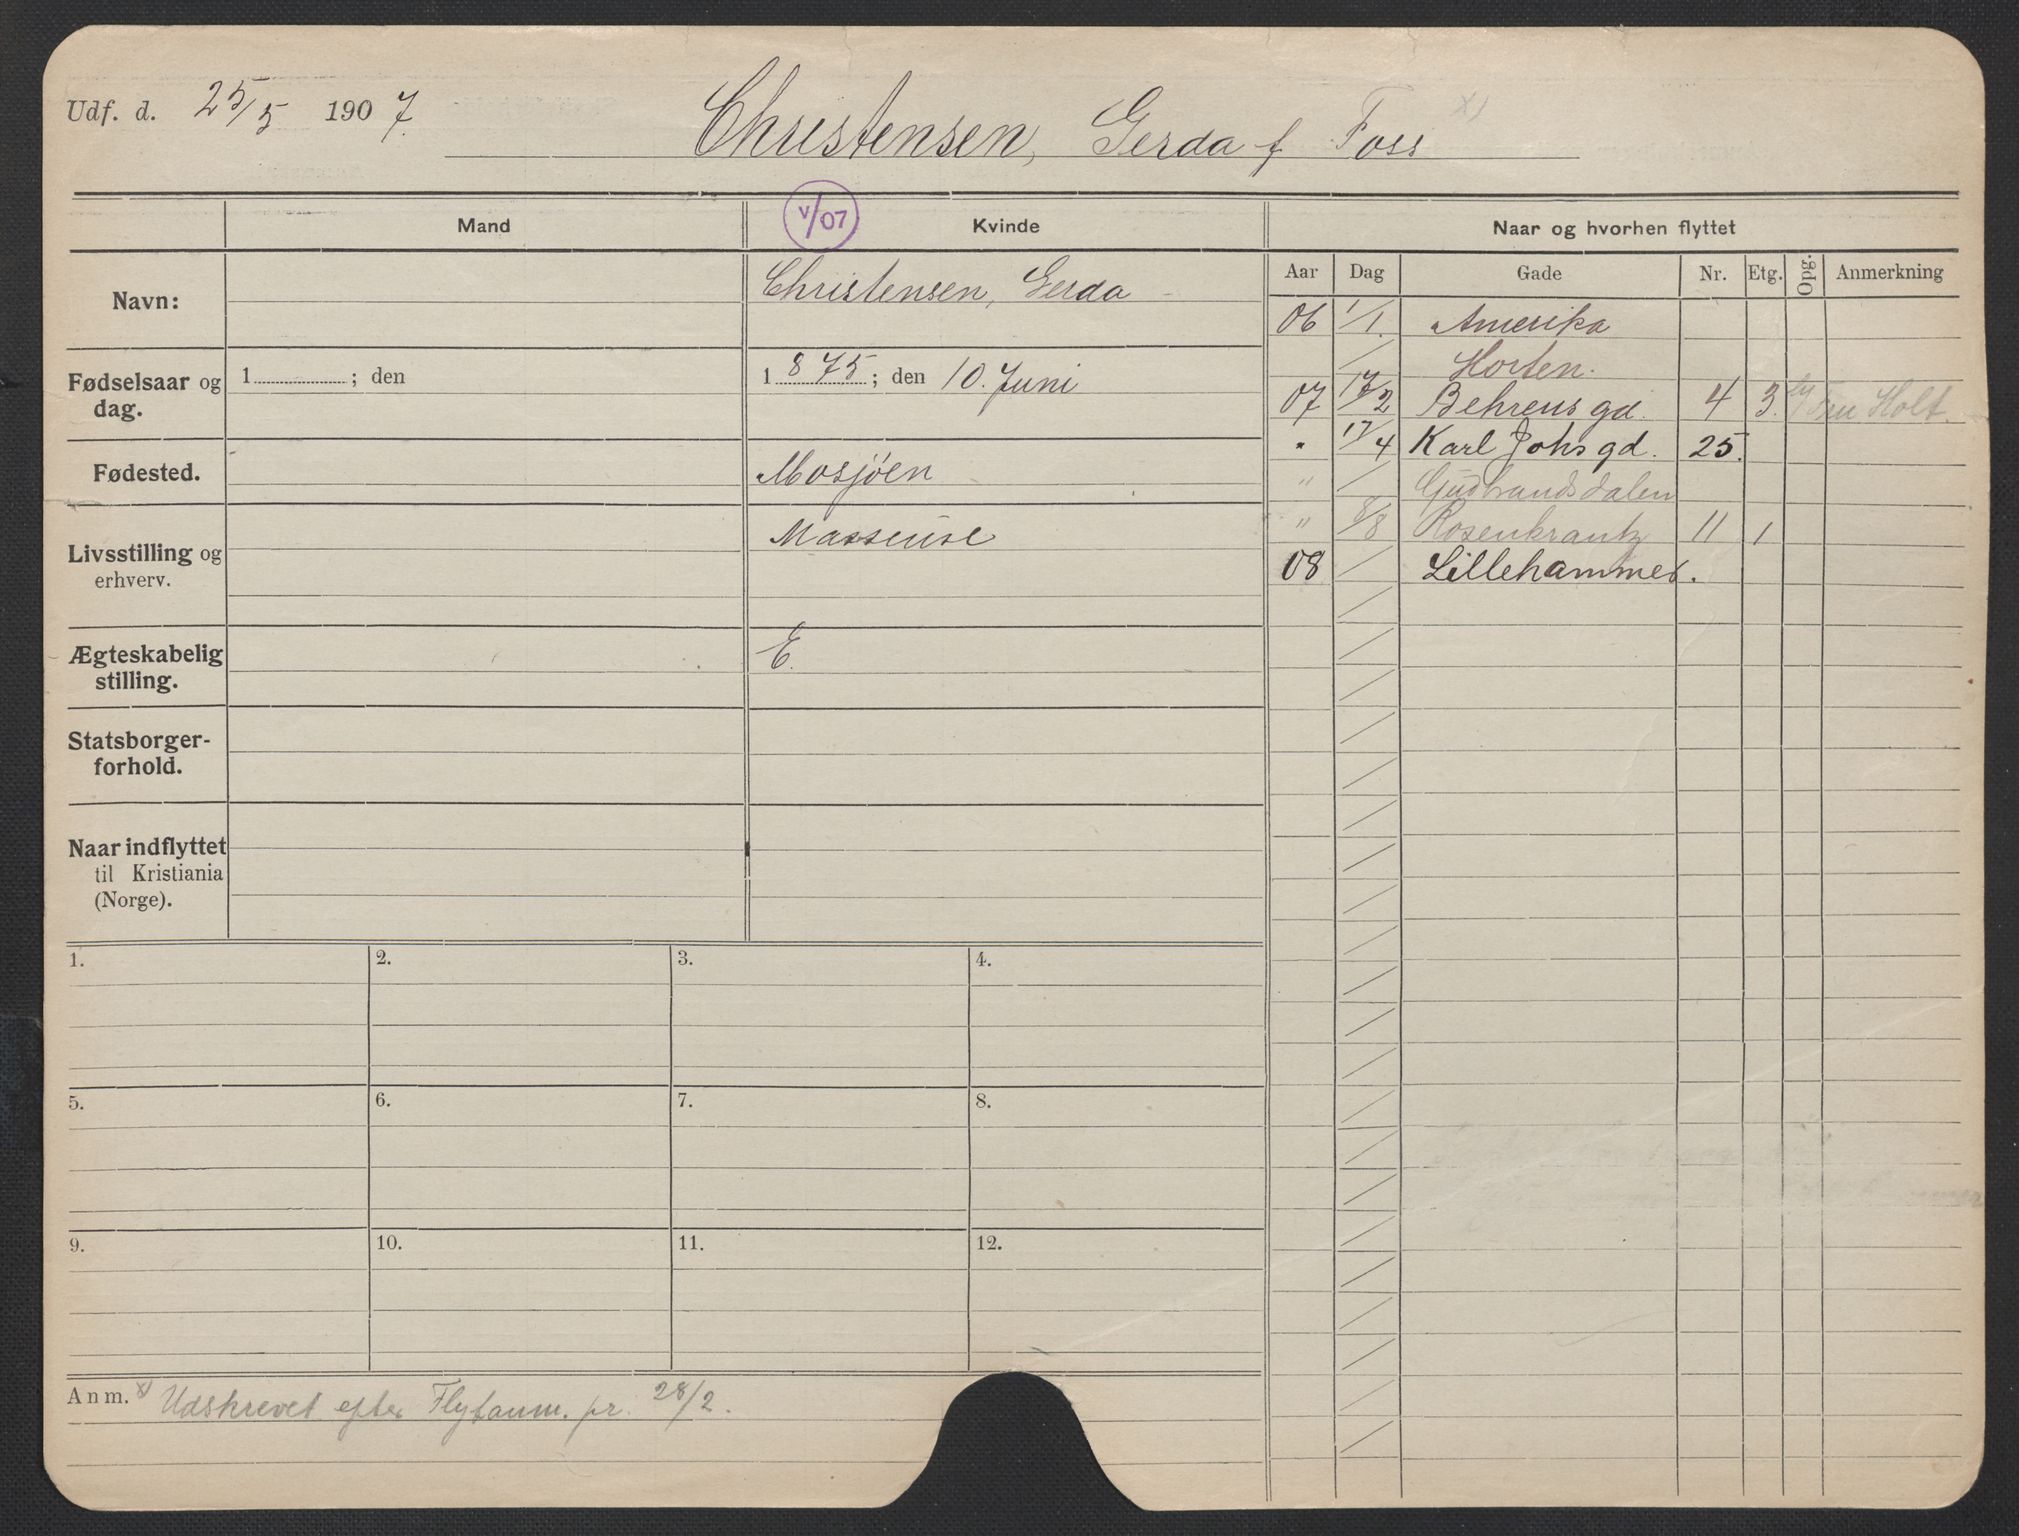 Udf. d. 25/5 1907. Christensen, Gerda f Foss x)
Mand V/07 Kvinde Naar og hvorhen flyttet
Aar Dag Gade Nr. Etg. Opg. Anmerkning
Navn: Christensen, Gerda
Fødselsaar og dag.
1 ; den
1875; den 10. Juni
Fødested. Mosjöen
Livsstilling og erhverv. Masseuse
Ægteskabelig stilling. E.
Statsborger-
forhold.
Naar indflyttet
til Kristiania
(Norge).
06 1/1. Amerika
/ Horten.
07 17/2 Behrens gd. 4 3. Fru Holt.
" 17/4 Karl Johs gd. 25.
" / Gudbrandsdalen
" 8/8 Rosenkrantz 11 1
08 / Lillehammer.
1. 2. 3. 4.
5. 6. 7. 8.
9. 10. 11. 12.
Anm. x) Udskrevet efter Flytanm. pr. 28/2.